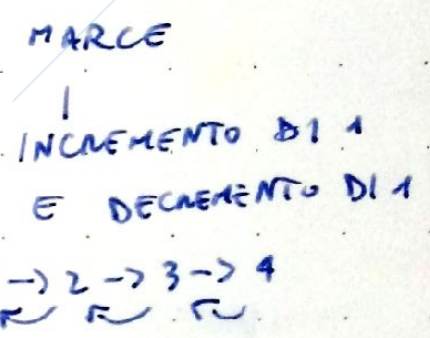 MARCE
INCREMENTO DI 1
E DECREMENTO DI 1
-> 2 -> 3 -> 4